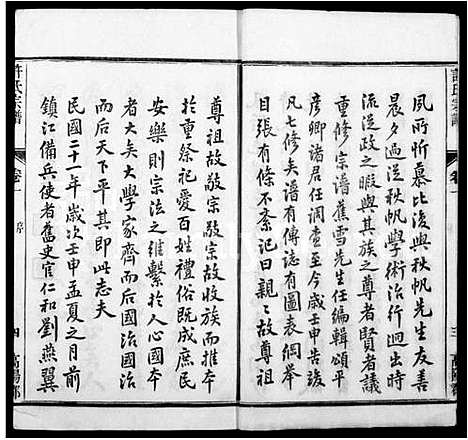 許氏宗譜
卷一
三
高陽郡
夙所忻慕比後與秋帆先生友善
晨夕過從秋帆學術治行
流從政之暇與其族之尊者賢者議
重修宗譜蕉雪先生任編頌
彥卿諸居間調查至今歲壬申告竣
凡七修矣譜有傳誌有圖表綱舉
目張有條不紊記曰親親故
尊祖故敬宗敬宗故收族而推本
於重祭祀愛百姓禮俗既成庶民
安樂則宗法之維繫於人心國本
者大矣大學家齊而后國治國治
而后天下平其即此志夫
民國二十一年歲次壬申孟夏之月前
鎮江備兵使者舊史官仁和劉燕翼
許氏宗譜
卷一
序
四
高陽郡